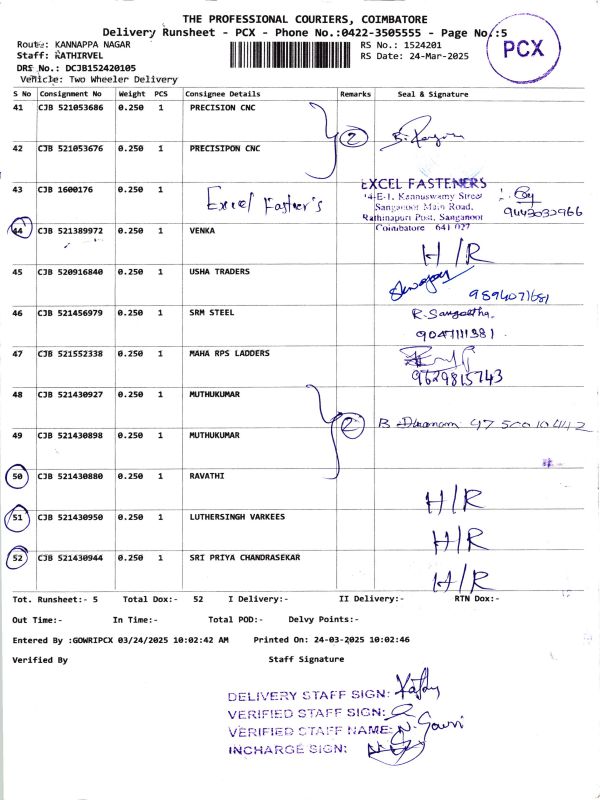 THE PROFESSIONAL COURIERS, COIMBATORE
Delivery Runsheet - PCX - Phone No.:0422-3505555 - Page No.:5
PCX
Route: KANNAPPA NAGAR
RS No.: 1524201
Staff: KATHIRVEL
RS Date: 24-Mar-2025
DRS No.: DCJB152420105
Vehicle: Two Wheeler Delivery
S No Consignment No Weight PCS Consignee Details Remarks Seal & Signature
41 CJB 521053686 0.250 1 PRECISION CNC
2
42 CJB 521053676 0.250 1 PRECISIPON CNC
43 CJB 1600176 0.250 1 Excel Fastner's
EXCEL FASTENERS
14-E-1, Kannuswamy Street
Sanganoor Main Road,
Rathinapuri Post, Sanganoor
Coimbatore 641 027
9443032966
44 CJB 521389972 0.250 1 VENKA H/R
45 CJB 520916840 0.250 1 USHA TRADERS 9594071681
46 CJB 521456979 0.250 1 SRM STEEL R. Sangeetha.
9047111381
47 CJB 521552338 0.250 1 MAHA RPS LADDERS
9629815743
48 CJB 521430927 0.250 1 MUTHUKUMAR
2 B
49 CJB 521430898 0.250 1 MUTHUKUMAR
50 CJB 521430880 0.250 1 RAVATHI H/R
51 CJB 521430950 0.250 1 LUTHERSINGH VARKEES H/R
52 CJB 521430944 0.250 1 SRI PRIYA CHANDRASEKAR H/R
Tot. Runsheet:- 5 Total Dox:- 52 I Delivery:- II Delivery:- RTN Dox:-
Out Time:- In Time:- Total POD:- Delvy Points:-
Entered By :GOWRIPCX 03/24/2025 10:02:42 AM Printed On: 24-03-2025 10:02:46
Verified By Staff Signature
DELIVERY STAFF SIGN:
VERIFIED STAFF SIGN:
VERIFIED STAFF NAME: N. Gowri
INCHARGE SIGN: